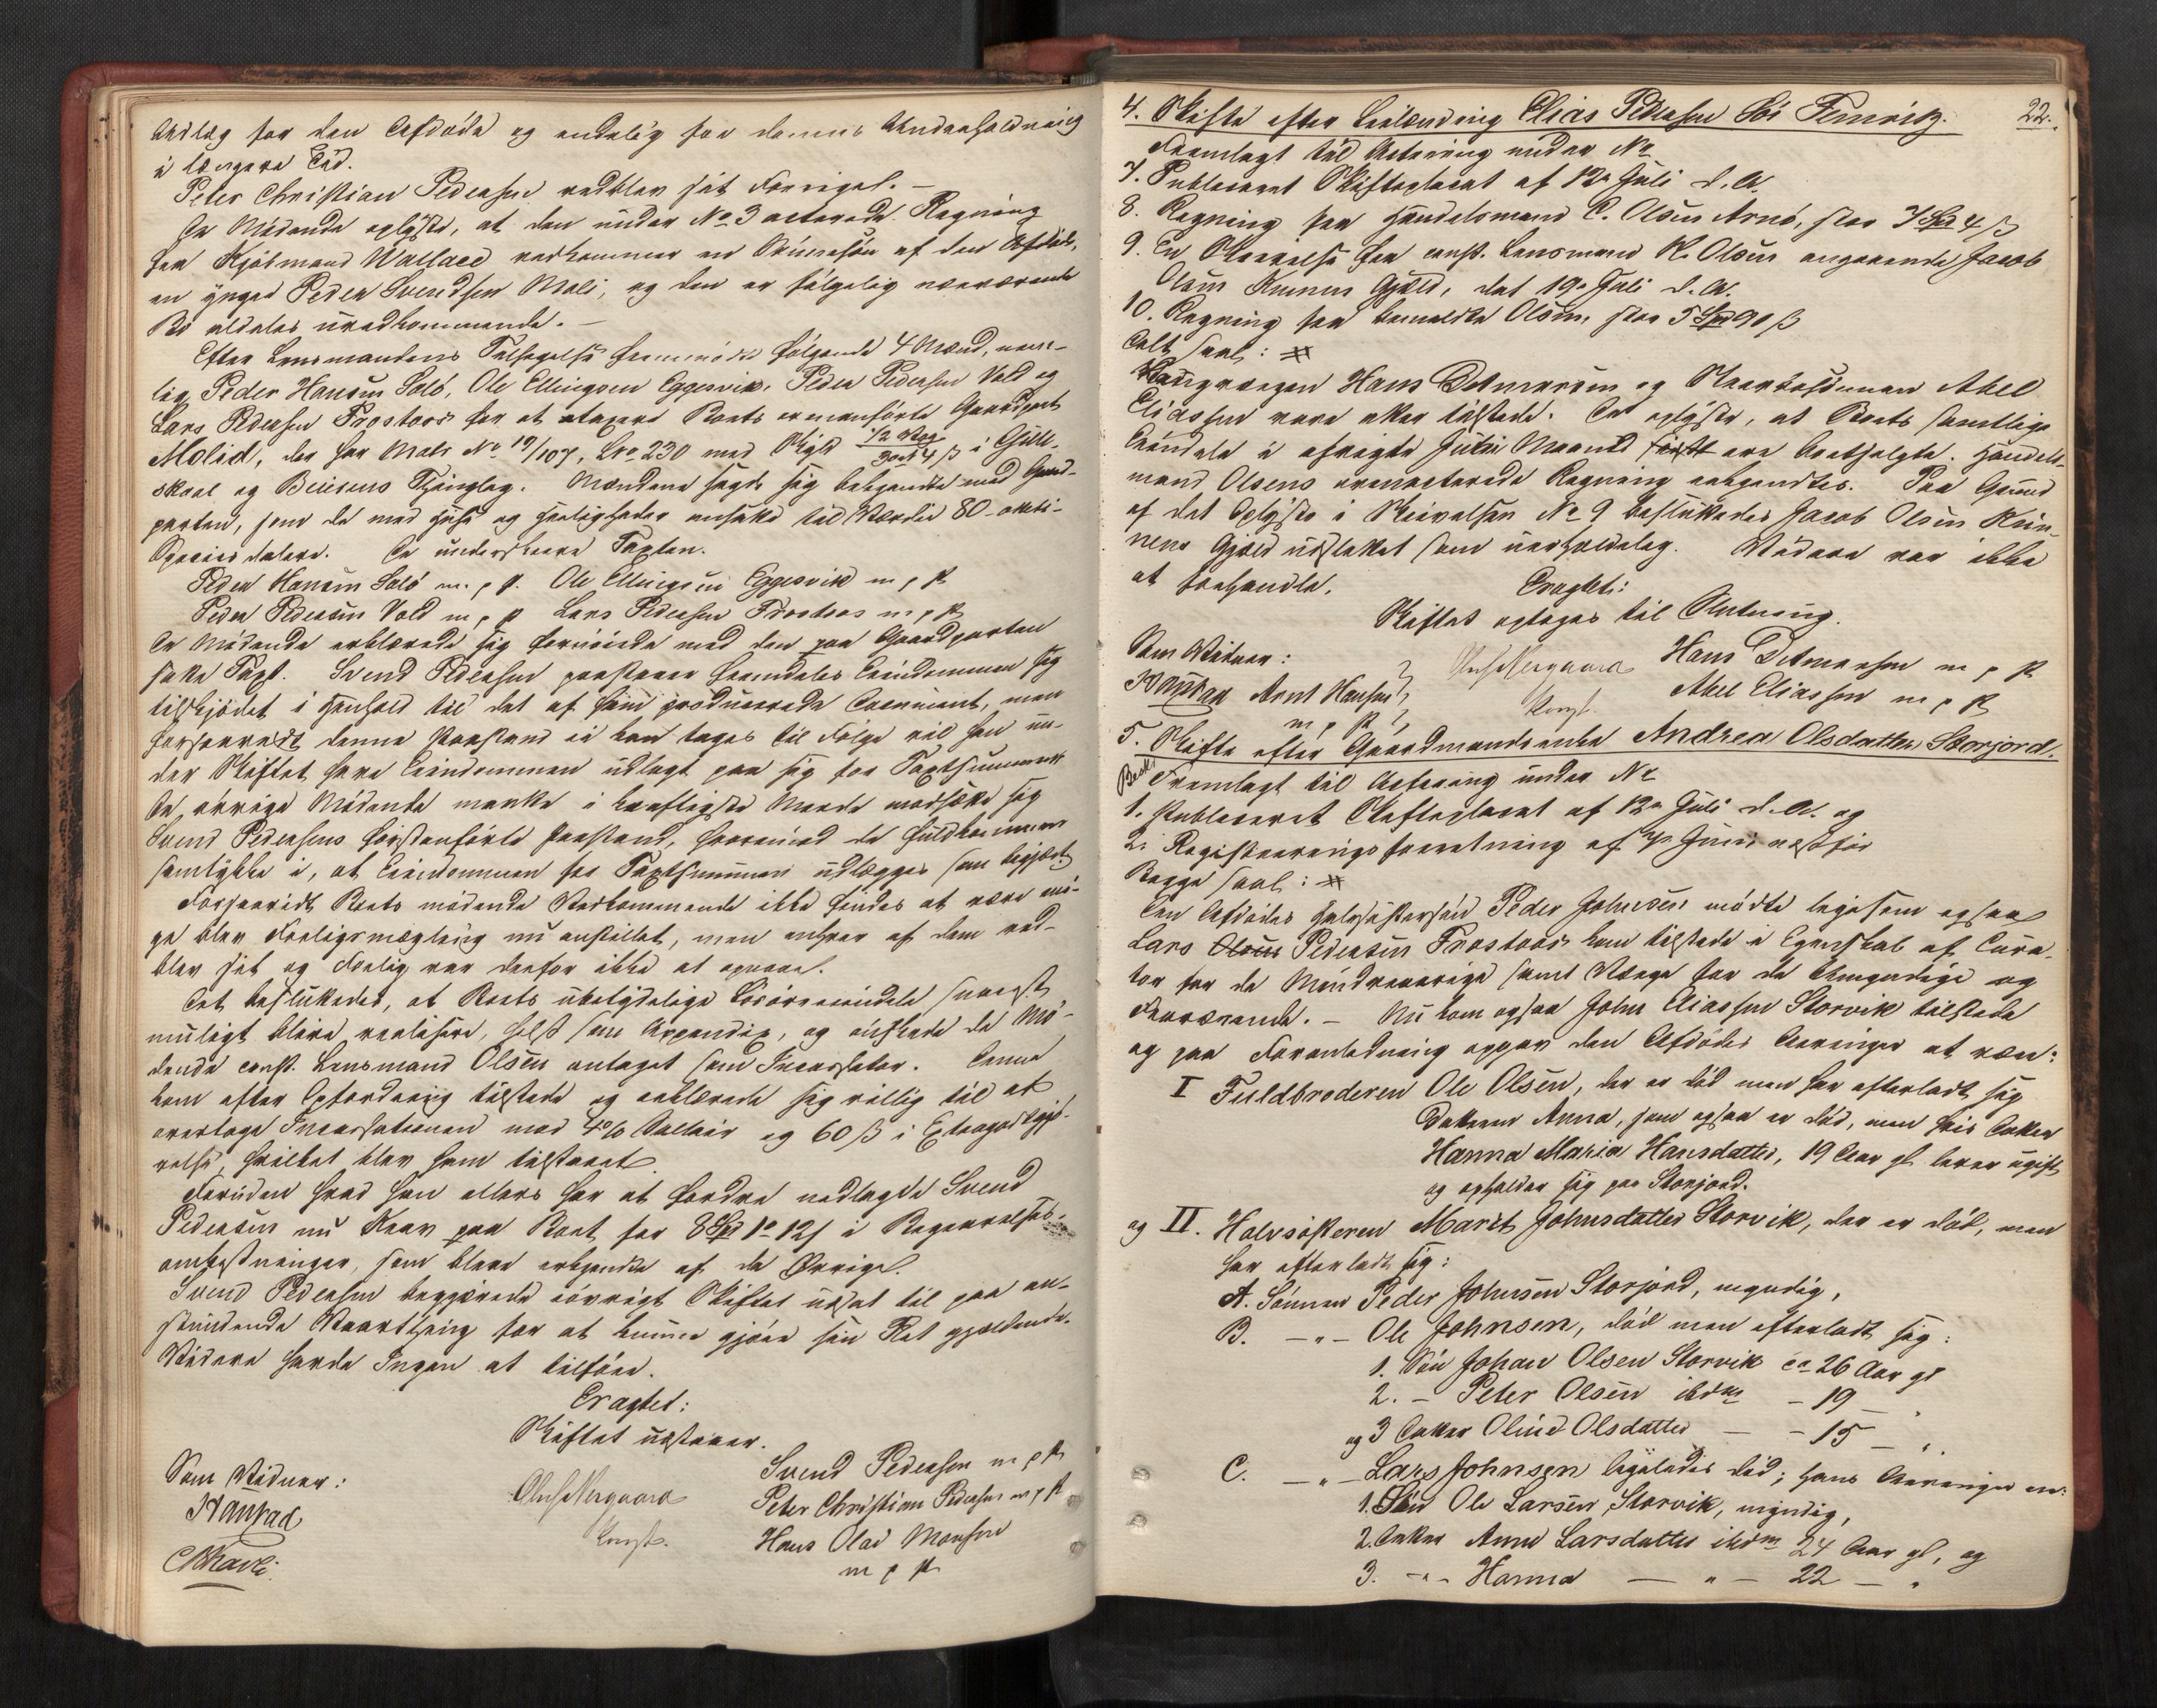 Udlæg for den Afdøde og endelig for dennes Underholdning
i længere Tid.
Peter Christian Pedersen vedblev sit Forrige. —
De Mødende oplyste, at den under No 3 acterede Regning
fra Kjøbmand Wallace vedkommer en Sønnesøn af den Afdøde,
en yngre Peder Svendsen Moli, og den er følgelig nærværende
Bo aldeles uvedkommende. —
Efter Lensmandens Tilsigelse fremmødte følgende 4 Mænd, nem-
lig Peder Hansen Solö, Ole Ellingsen Eggesvik, Peder Pedersen Vold og
Lars Pedersen Frostaas for at taxere Boets ommeldte Gaardpart
Molid, der har Matr No 19/107, Lno 230 med Skyld 1/2 Vog
4 ß i Gilde-
skaal og Beierens Thinglag. Mændene sagde sig bekjendte med Gaard-
parten, som de med Huse og Herligheder ansatte til Værdie 80 - otteti-
Speciesdalere. De underskrev Taxten.
Peder Hansen Solö m. p. P. Ole Ellingsen Eggesvik m p P
Peder Pedersen Vold m p P Lars Pedersen Frostaas m p P
De Mødende erklærede sig fornøiede med den paa Gaardparten
satte Taxt. Svend Pedersen paastaaer fremdeles Eiendommen sig
tilskjödet i Henhold til det af ham producerede Document, men
forsaavidt denne Paastand ei kan tages til Følge vil han un-
der Skiftet have Eiendommen udlagt paa sig for Taxtsummen
De øvrige Mødende maatte i kraftigste Maade modsætte sig
Svend Pedersens førstanførte Paastand, hvorimod de fuldkommen
samtykke i, at Eiendommen for Taxtsummen udlægges som begjært
Forsaavidt Boets mødende Vedkommende ikke findes at være eni-
ge blev Forligsmægling nu anstillet, men enhver af dem ved-
blev sit og Forlig var derfor ikke at opnaae.
Det besluttedes, at Boets ubetydelige Løsöreeiendele snarest
muligt blive realiserede, helst som Appendix, og ønskede de Mø-
dende const. Lensmand Olsen antaget som Incassator. Denne
kom efter Opfordring tilstede og erklærede sig villig til at
overtage Incassationen mod 4% Sallair og 60 ß i Extragodtgjö-
relse, hvilket blev ham tilstaaet.
Foruden hvad han ellers har at fordre nedlagde Svend
Pedersen nu Krav paa Boet for 8 Spd 1 ort 12 ß i Begravelses-
omkostninger, som bleve erkjendte af de Øvrige.
Svend Pedersen begjærede iøvrigt Skiftet udsat til paa an-
stundende Vaarthing for at kunne gjöre sin Ret gjældende.
Videre havde Ingen at tilføre.
Eragtet:
Skiftet udstaaer.
Som Vidner:
Svend Pedersen m p P
Peter Christian Pedersen m p P
Hans Olai Monsen
m p P
Const.
22.
4. Skifte efter Leilænding Elias Pedersen
Fremlagt til Acterering under No
7. Publiceret Skifteplacat af 12te Juli d. A.
8. Regning fra Handelsmand C. Olsen Arnö, stor 7 Spd 4 ß
9. En Skrivelse fra const. Lensmand K. Olsen angaaende Jacob
Olsens Gjæld, dat 19de Juli d. A.
10. Regning fra bemeldte Olsen, stor 5 Spd 90 ß
Alt saal: #
Hans Detmersen og Abel
Eliassen vare atter tilstede. De oplyste, at Boets samtlige
Eiendele i afvigte Juni Maaned ere bortsolgte. Handels-
mand Olsens ovenacterede Regning erkjendtes. Paa Grund
af det Oplyste i Skrivelsen No 9 besluttedes Jacob Olsen
Gjæld udslettet som uerholdelig. Videre var ikke
at forhandle.
Eragtet:
Skiftet optages til Slutning.
Som Vidner:
Arnt Hansen
m p P
Const.
Hans Detmersen m p P
Abel Eliassen m p P
5. Skifte efter Gaardmandsenke Andrea Olsdatter Storjord.
Fremlagt til Acterering under No
1. Publiceret Skifteplacat af 12te Juli d. A. og
2. Registreringsforretning af Juni næstfør
Begge saal: #
Den Afdødes Halvsøstersøn Peder Johnsen mødte ligesom ogsaa
Lars Pedersen Frostaas kom tilstede i Egenskab af Cura-
tor for de Mindreaarige samt Værge for de Umyndige og
Fraværende. — Nu kom ogsaa John Eliassen Storvik tilstede
og paa Foranledning opgav den Afdødes Arvinger at være:
I Fuldbroderen Ole Olsen, der er död men har efterladt sig
Datteren Anna, som ogsaa er död, men hvis Datter
Hanna Maria Hansdatter, 19 Aar gl lever ugift
og opholder sig paa Storjord.
og II. Halvsösteren Marit Johnsdatter Storvik, der er död, men
har efterladt sig:
A. Sönnen Peder Johnsen Storjord, myndig,
B. — " — Ole Johnsen, död men efterladt sig:
1. Sön Johan Olsen Storvik ca 26 Aar gl
2. — Peter Olsen ibdm — 19 "
og 3 Datter Oline Olsdatter — — 15 — "
C. — " — Lars Johnsen ligeledes död; hans Arvinger ere:
1. Sön Ole Larsen Storvik, myndig,
2. Datter Anne Larsdatter ibdm 24 Aar gl, og
3. — " — Hanna — " — 22 — "